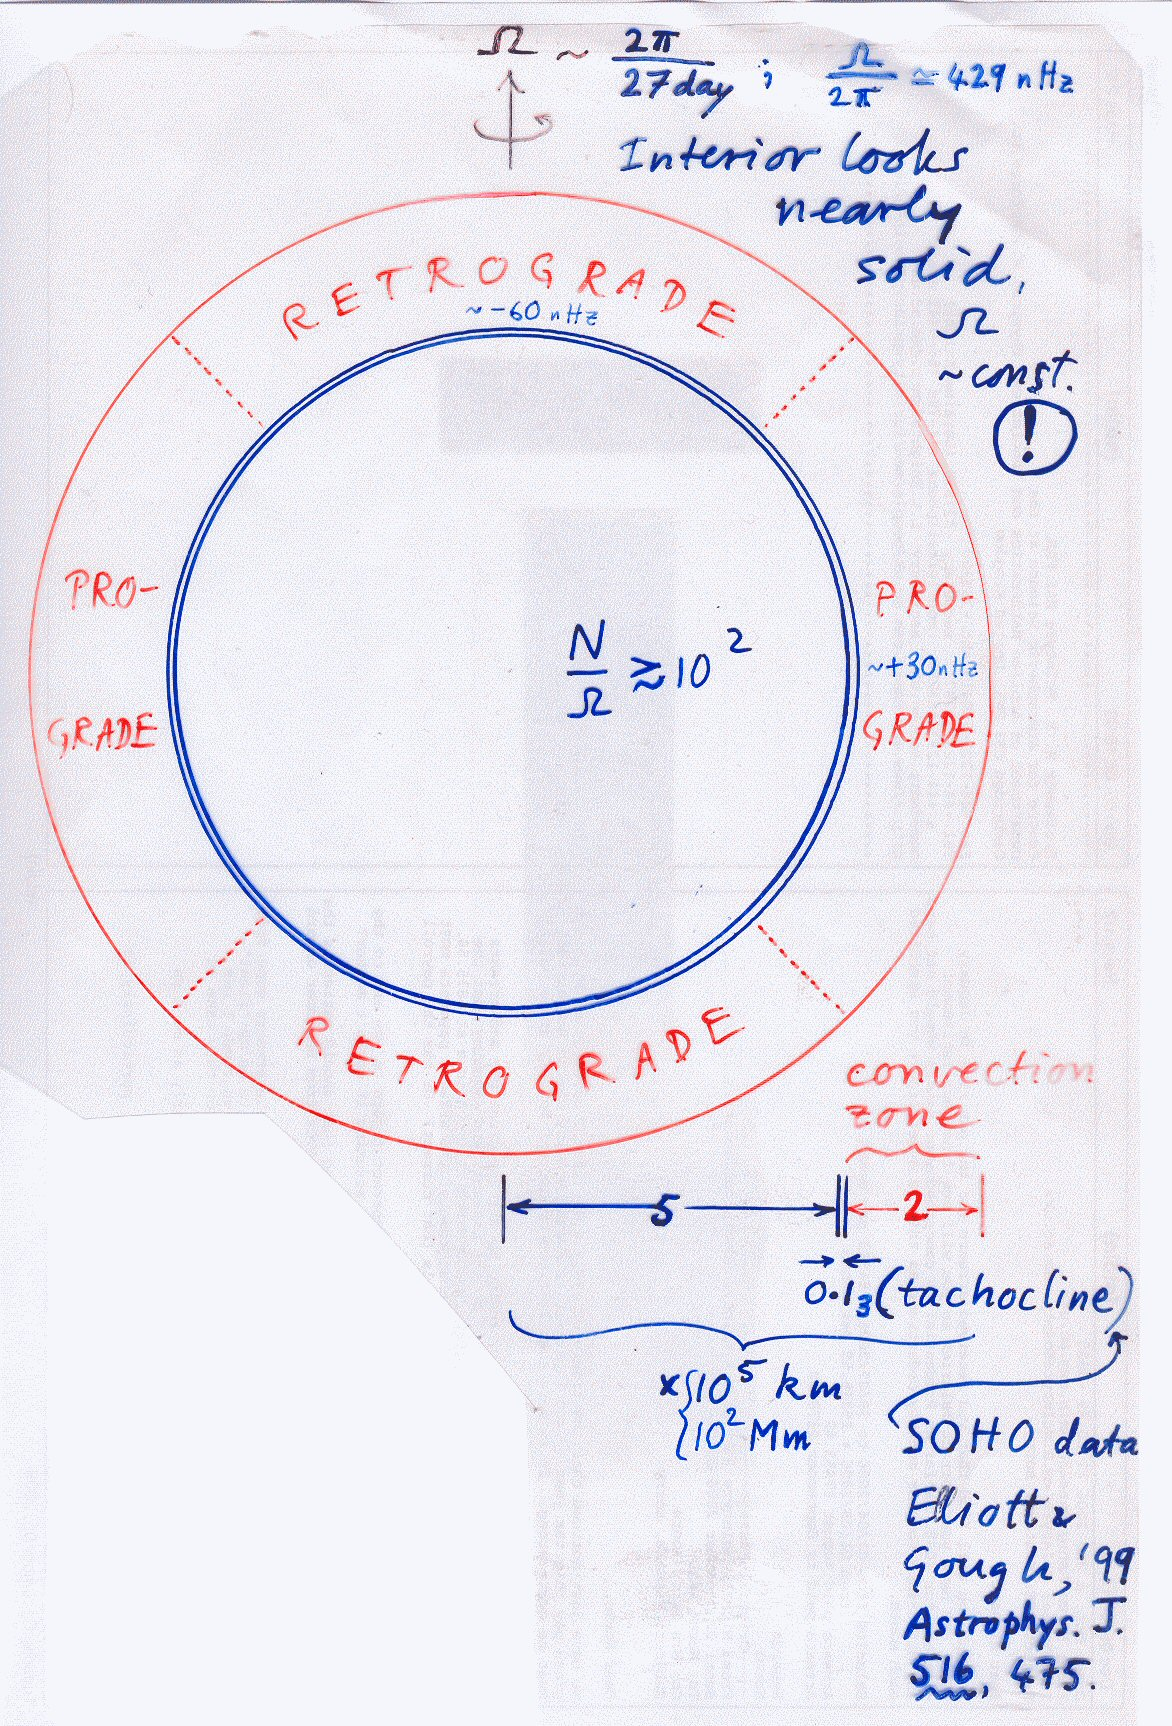 Ω ~ 2π/27day ; Ω/2π ≃ 429 nHz
Interior looks
nearly
solid,
Ω
~const.
!
RETROGRADE
~ -60 nHz
PRO-
GRADE
PRO-
~+30nHz
GRADE
N/Ω ≳ 10²
RETROGRADE
convection
zone
5
2
0.13 (tachocline)
x { 10⁵ km
{ 10² Mm
SOHO data
Eliott &
Gough, '99
Astrophys. J.
516, 475.